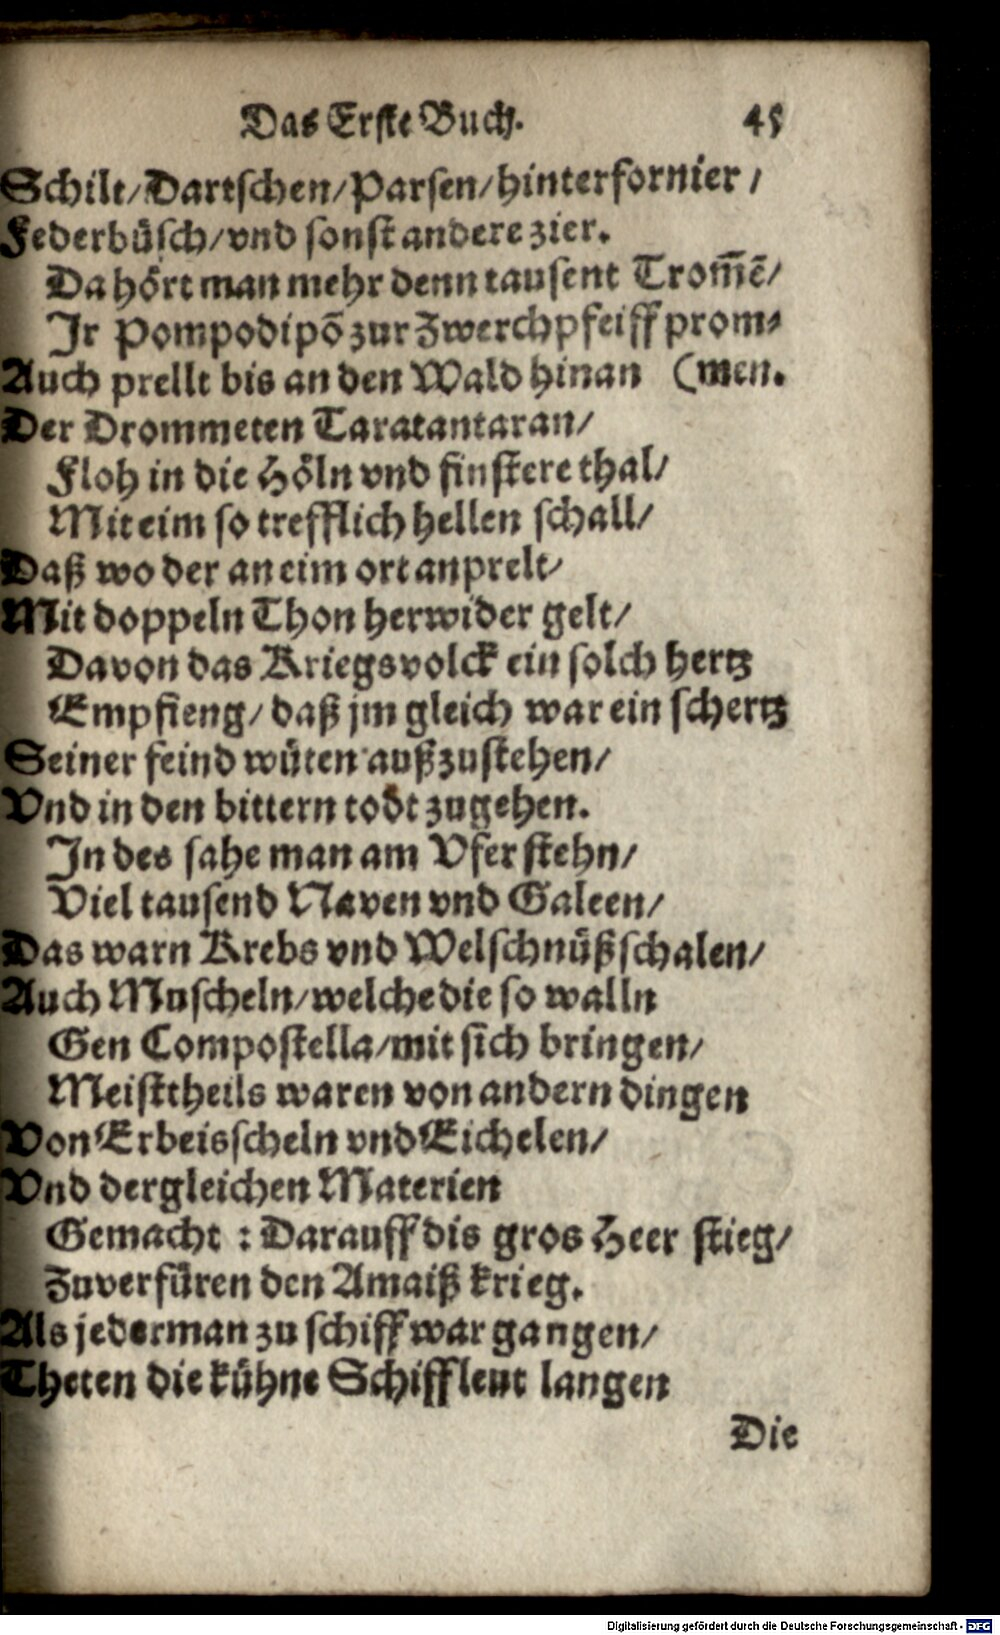 Das Erste Buch. 45
Schilt/Dartschen/Parsen/hinterfornier/
Federbüsch/vnd sonst andere zier.
Da hört man mehr denn tausent Trom̃ẽ/
Jr Pompodipõ zur Zwerchpfeiff prom-
Auch prellt bis an den Wald hinan (men.
Der Drommeten Taratantaran/
Floh in die Höln vnd finstere thal/
Mit eim so trefflich hellen schall/
Daß wo der an eim ort anprelt/
Mit doppeln Thon herwider gelt/
Davon das Kriegsvolck ein solch hertz
Empfieng/ daß jm gleich war ein schertz
Seiner feind wüten außzustehen/
Vnd in den bittern todt zugehen.
Jn des sahe man am Vfer stehn/
Viel tausend Naven vnd Galeen/
Das warn Krebs vnd Welschnüßschalen/
Auch Muscheln/welche die so walln
Gen Compostella/mit sich bringen/
Meisttheils waren von andern dingen
Von Erbeisscheln vnd Eichelen/
Vnd dergleichen Materien
Gemacht : Darauff dis gros Heer stieg/
Zuverfüren den Amaiß krieg.
Als jederman zu schiff war gangen/
Theten die kühne Schiffleut langen
Die
Digitalisierung gefördert durch die Deutsche Forschungsgemeinschaft - DFG